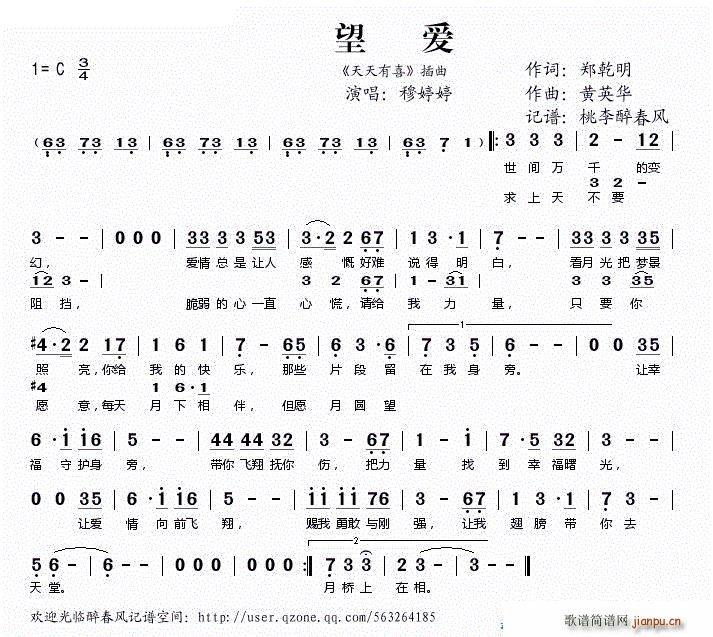 望 爱
1=C 3/4 《天天有喜》插曲 作词：郑乾明
演唱：穆婷婷 作曲：黄英华
记谱：桃李醉春风
( 63 73 13 | 63 73 13 | 63 73 13 | 63 7 1 ) ‖: 3 3 3 | 2 - 12 |
世 间 万 千 的变
3 2 -
求 上 天 不 要
3 - - | 0 0 0 | 33 3 3 53 | 3·2 2 67 | 1 3·1 | 7 - - | 33 3 3 35 |
幻， 爱情 总 是 让人 感 慨 好难 说 得 明 白， 看月 光 把 梦景
12 3 - 3 2 67 1 - 31 3 3 35
阻 挡， 脆弱 的 心 一直 心 慌，请给 我 力 量， 只 要 你
#4·2 2 17 | 1 6 1 | 7 - 65 | 6 3·6 | 1 7 3 5 | 6 - - | 0 0 35 |
照 亮，你给 我 的 快 乐，那些 片 段 留 在 我 身 旁。 让幸
#4 1 6·1
愿 意，每天 月 下 相 伴，但愿 月 圆 望
6·1 16 | 5 - - | 44 44 32 | 3 - 67 | 1 - 1 | 7·5 65 | 3 - - |
福 守 护身 旁， 带你 飞翔 抚你 伤，把力 量 找 到 幸 福曙 光，
0 0 35 | 6·1 16 | 5 - - | 11 11 76 | 5 - 67 | 1 3·1 | 7 1 3 |
让爱 情 向 前飞 翔， 赐我 勇敢 与刚 强，让我 翅 膀 带 你 去
5 6 - | 6 - - | 0 0 0 | 0 0 0 :‖ 2 7 3 3 | 23 - | 3 - - ‖
天 堂。 月 桥 上 在 相。
欢迎光临醉春风记谱空间：http://user.qzone.qq.com/563264185
歌谱简谱网
jianpu.cn